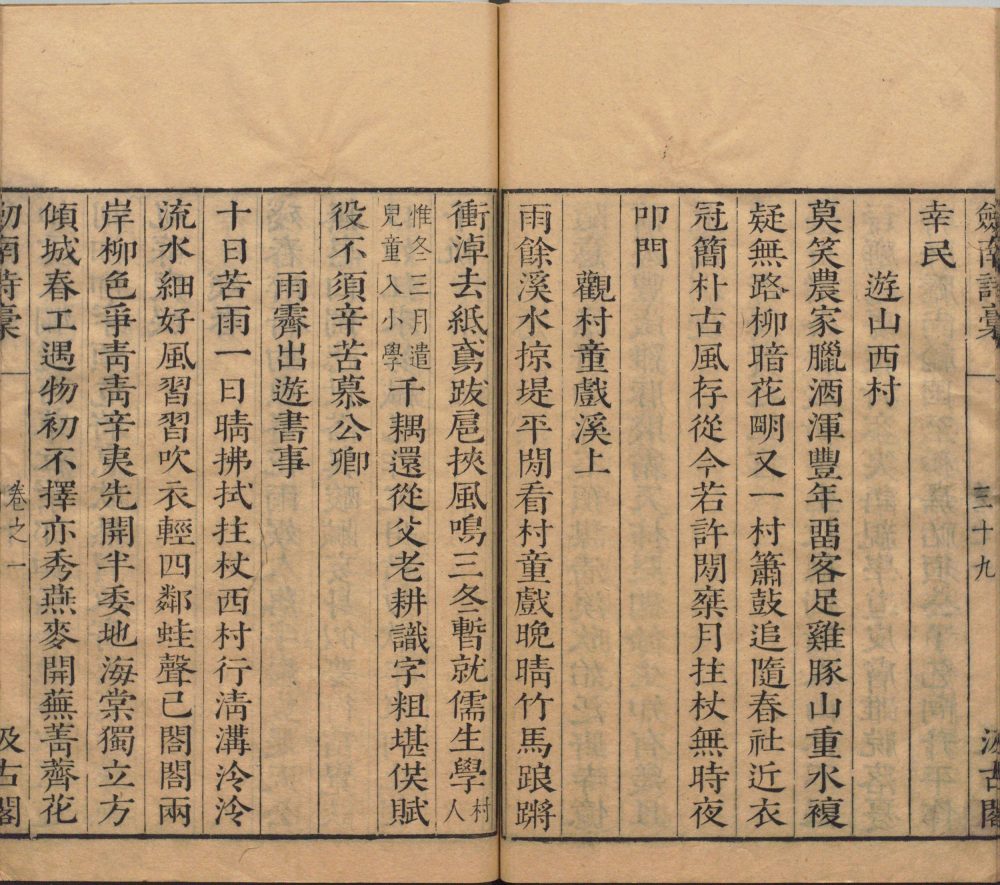 劍南詩稾
三十九
汲古閣
幸民
遊山西村
莫笑農家臘酒渾豐年畱客足雞豚山重水複
疑無路柳暗花朙又一村簫鼓追隨春社近衣
冠簡朴古風存從今若許閒椉月拄杖無時夜
叩門
觀村童戲溪上
雨餘溪水掠堤平閒看村童戲晚晴竹馬踉蹡
衝淖去紙鳶跋扈挾風鳴三冬暫就儒生學村人
惟冬三月遣兒童入小學千耦還從父老耕識字粗堪供賦
役不須辛苦慕公卿
雨霽出遊書事
十日苦雨一日晴拂拭拄杖西村行清溝泠泠
流水細好風習習吹衣輕四鄰蛙聲已閤閤兩
岸柳色爭青青辛夷先開半委地海棠獨立方
傾城春工遇物初不擇亦秀燕麥開蕪菁薺花
劒南詩稾
卷之一
汲古閣